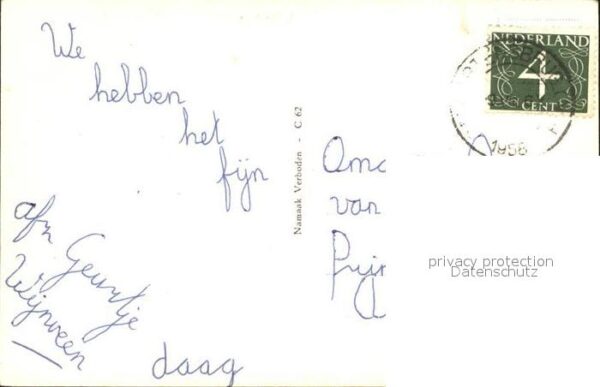 We
hebben
het
fijn
afz
Geurtje
Wijnveen
daag
Namaak Verboden - C 62
NEDERLAND
4
CENT
1958
Oma
van
privacy protection
Datenschutz